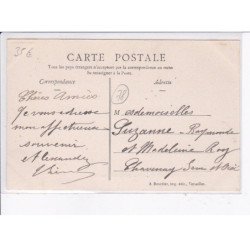 35 €
CARTE POSTALE
Tous les pays étrangers n'acceptent pas la correspondance au recto
Se renseigner à la Poste.
Correspondance
Adresse
Chères Amies
Je vous adresse
mon affectueux
souvenir
Alexandre
Mesdemoiselles
Suzanne - Raymonde
et Madeleine Roy
Thavenay Seine et Oise
A. Bourdier, imp. édit., Versailles.